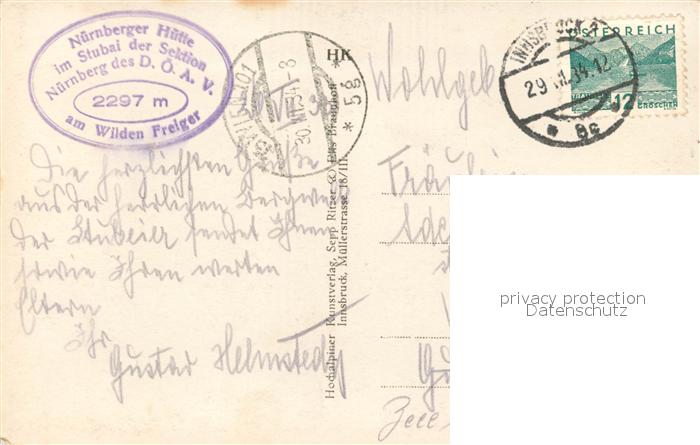 Nürnberger Hütte
im Stubai der Sektion
Nürnberg des D. Ö. A. V.
2297 m
am Wilden Freiger
HK
Wohlgeb
INNSBRUCK 2
29.
34.12
* 9c
ÖSTERREICH
12
GROSCHEN
WIEN 101
30.
34-8
* 5g *
Die herzlichsten Grüße
aus der herrlichen Bergwelt
der Stubaier sendet Ihnen
sowie Ihren werten
Eltern
Ihr
Gustav Helmstedt
Hochalpiner Kunstverlag, Sepp Ritzer
Innsbruck, Müllerstrasse 18/III.
Fräulein
privacy protection
Datenschutz